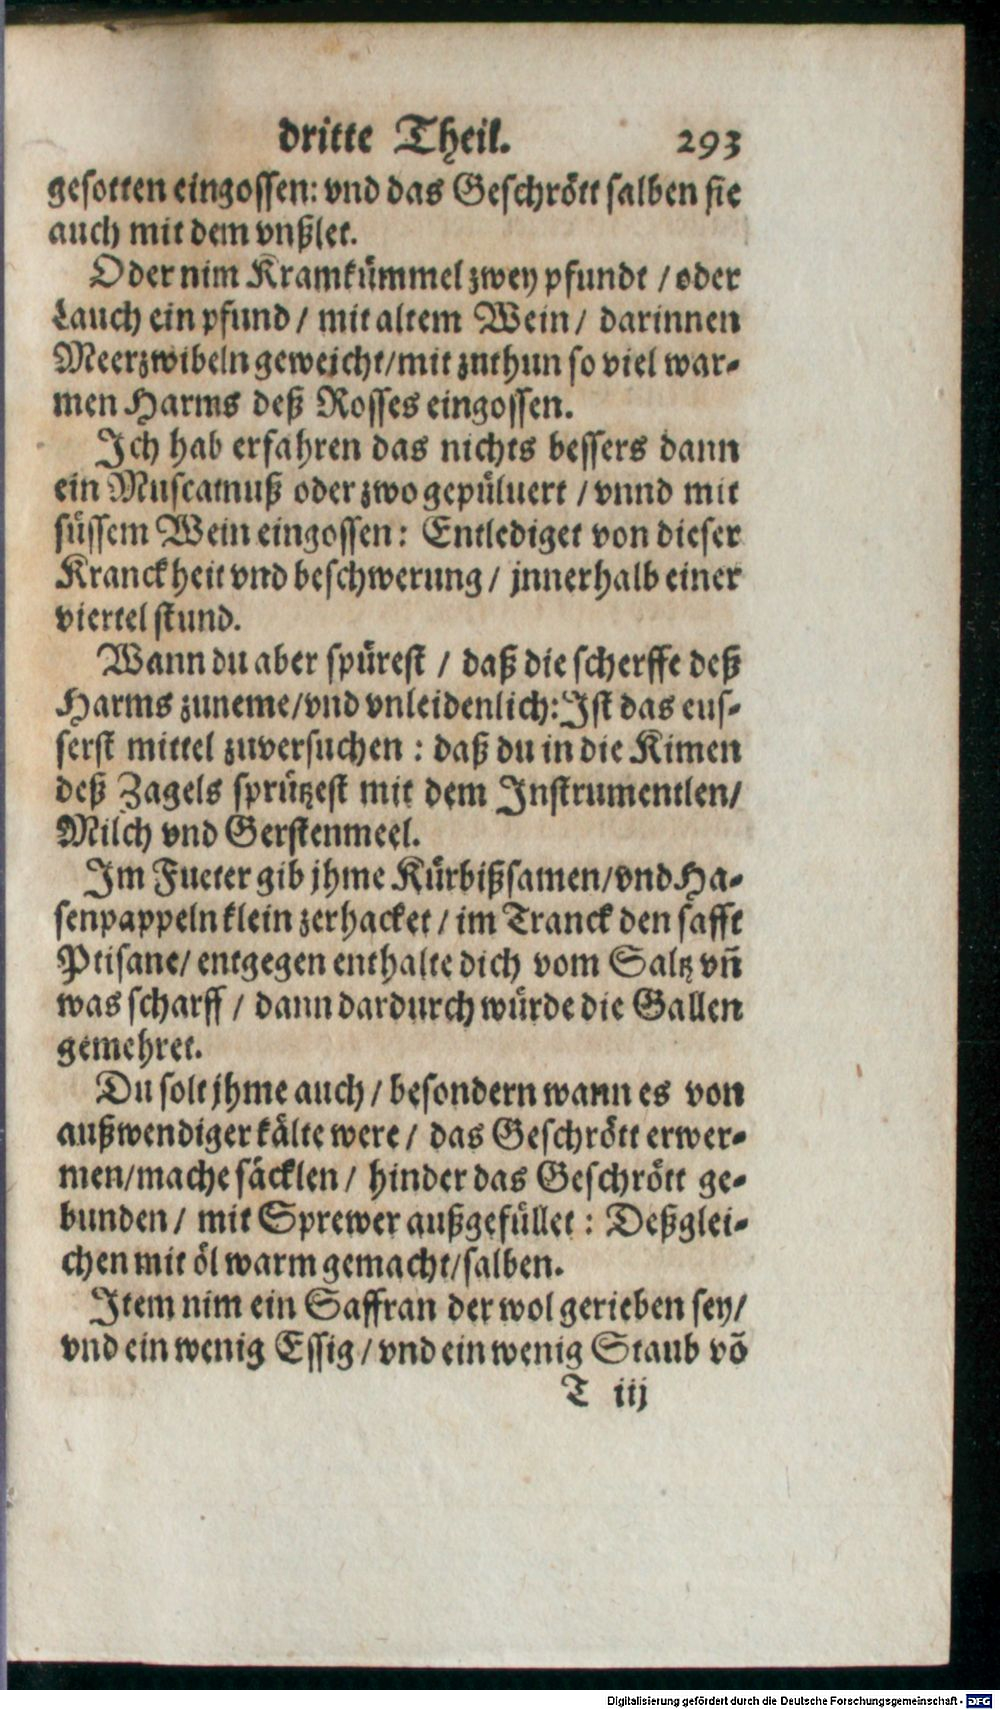 dritte Theil. 293
gesotten eingossen: vnd das Geschrött salben sie
auch mit dem vnßlet.
Oder nim Kramkümmel zwey pfundt / oder
Lauch ein pfund / mit altem Wein / darinnen
Meerzwibeln geweicht / mit zuthun so viel war-
men Harms deß Rosses eingossen.
Ich hab erfahren das nichts bessers dann
ein Muscatnuß oder zwo gepüluert / vnnd mit
süssem Wein eingossen: Entlediget von dieser
Kranckheit vnd beschwerung / jnnerhalb einer
viertel stund.
Wann du aber spürest / daß die scherffe deß
Harms zuneme / vnd vnleidenlich: Ist das eus-
serst mittel zuversuchen : daß du in die Kimen
deß Zagels sprützest mit dem Instrumentlen /
Milch vnd Gerstenmeel.
Im Fueter gib jhme Kürbißsamen / vnd Ha-
senpappeln klein zerhacket / im Tranck den safft
Ptisane / entgegen enthalte dich vom Saltz vñ
was scharff / dann dardurch würde die Gallen
gemehret.
Du solt jhme auch / besondern wann es von
außwendiger kälte were / das Geschrött erwer-
men / mache säcklen / hinder das Geschrött ge-
bunden / mit Sprewer außgefüllet : Deßglei-
chen mit öl warm gemacht / salben.
Item nim ein Saffran der wol gerieben sey /
vnd ein wenig Essig / vnd ein wenig Staub võ
T iij
Digitalisierung gefördert durch die Deutsche Forschungsgemeinschaft - DFG